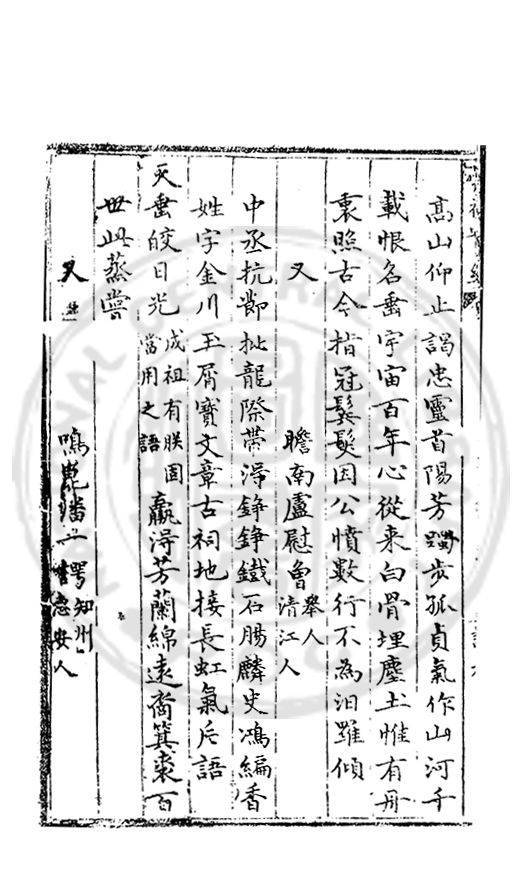 高山仰止謁忠靈首陽芳躅步孤貞氣作山河千
載恨名垂宇宙百年心從来白骨埋塵土惟有丹
衷照古今指冠鬢髮因公憤數行不為汨羅傾
又 瞻南盧慰曾 舉人清江人
中丞抗節批龍際帶淂錚錚鐵石腸麟史鴻編香
姓字金川玉屑寶文章古祠地接長虹氣片語
天垂皎日光 成祖有朕固當用之語 贏淂芳蘭綿遠裔箕裘百
世此蒸嘗
又 知州 安人